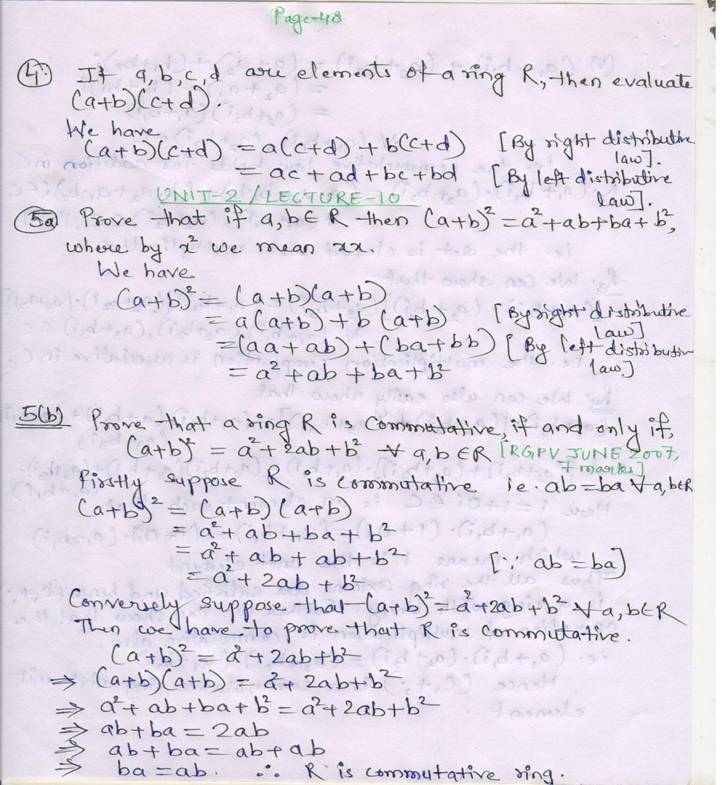 Page-48
4. If a, b, c, d are elements of a ring R, then evaluate
(a+b)(c+d).
We have
(a+b)(c+d) = a(c+d) + b(c+d) [By right distributive law].
= ac + ad + bc + bd [By left distributive law].
UNIT-2/LECTURE-10
5a) Prove that if a, b ∈ R then (a+b)² = a² + ab + ba + b²,
where by x² we mean xx.
We have
(a+b)² = (a+b)(a+b)
= a(a+b) + b(a+b) [By right distributive law]
= (aa + ab) + (ba + bb) [By left distributive law]
= a² + ab + ba + b²
5(b) Prove that a ring R is Commutative, if and only if,
(a+b)² = a² + 2ab + b² ∀ a, b ∈ R [RGPV JUNE 2007, 7 marks]
Firstly suppose R is commutative ie. ab = ba ∀ a, b ∈ R
(a+b)² = (a+b)(a+b)
= a² + ab + ba + b²
= a² + ab + ab + b² [∵ ab = ba]
= a² + 2ab + b²
Conversely suppose that (a+b)² = a² + 2ab + b² ∀ a, b ∈ R
Then we have to prove that R is commutative.
(a+b)² = a² + 2ab + b²
⇒ (a+b)(a+b) = a² + 2ab + b²
⇒ a² + ab + ba + b² = a² + 2ab + b²
⇒ ab + ba = 2ab
⇒ ab + ba = ab + ab
⇒ ba = ab. ∴ R is commutative ring.